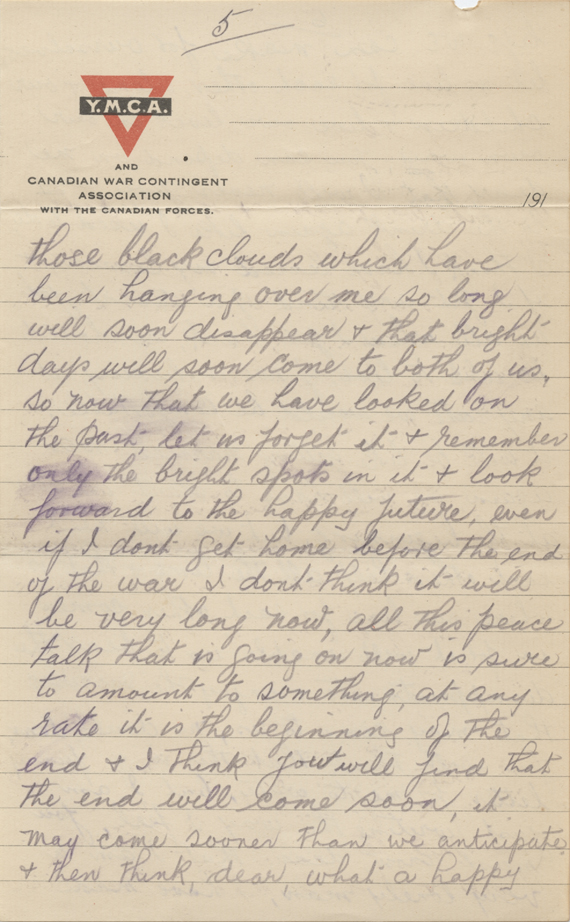 5
Y.M.C.A.
AND
CANADIAN WAR CONTINGENT
ASSOCIATION
WITH THE CANADIAN FORCES.
191
those black clouds which have
been hanging over me so long
will soon disappear & that bright
days will soon come to both of us,
so now that we have looked on
the past, let us forget it & remember
only the bright spots in it & look
forward to the happy future, even
if I dont get home before the end
of the war I dont think it will
be very long now, all this peace
talk that is going on now is sure
to amount to something, at any
rate it is the beginning of the
end & I think you will find that
the end will come soon, it
may come sooner than we anticipate
& then think, dear, what a happy